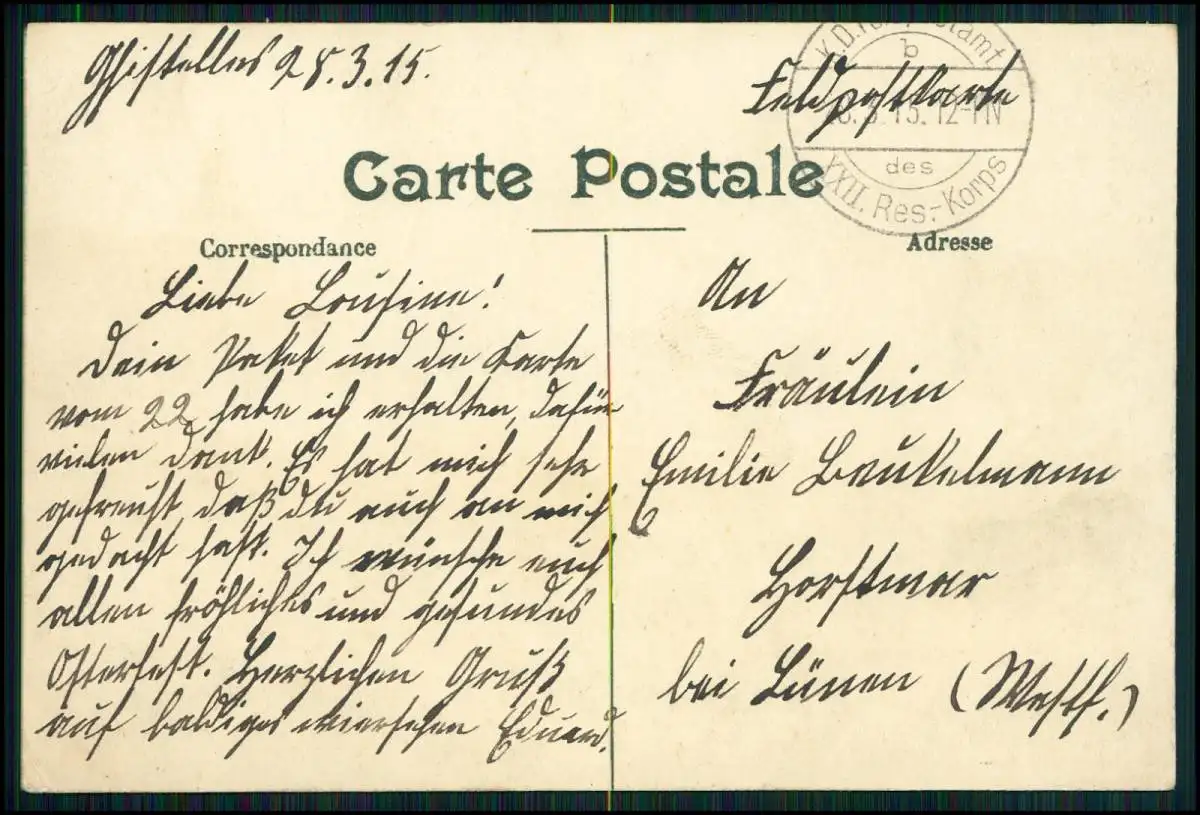 Ghistelles 28.3.15.
Feldpostkarte
K.D. Feldpostamt
b
8.3.15. 12-1N
des
XXII. Res.-Korps
Carte Postale
Correspondance
Adresse
Liebe Cousine!
Dein Paket und die Karte
vom 22 habe ich erhalten, dafür
vielen Dank. Es hat mich sehr
gefreuht, daß du auch an mich
gedacht hast. Ich wünsche euch
allen fröhliches und gesundes
Osterfest. Herzlichen Gruß
auf baldiges wiersehen Eduard.
An
Fräulein
Emilie Beukelmann
Horstmar
bei Lünen (Westf.)